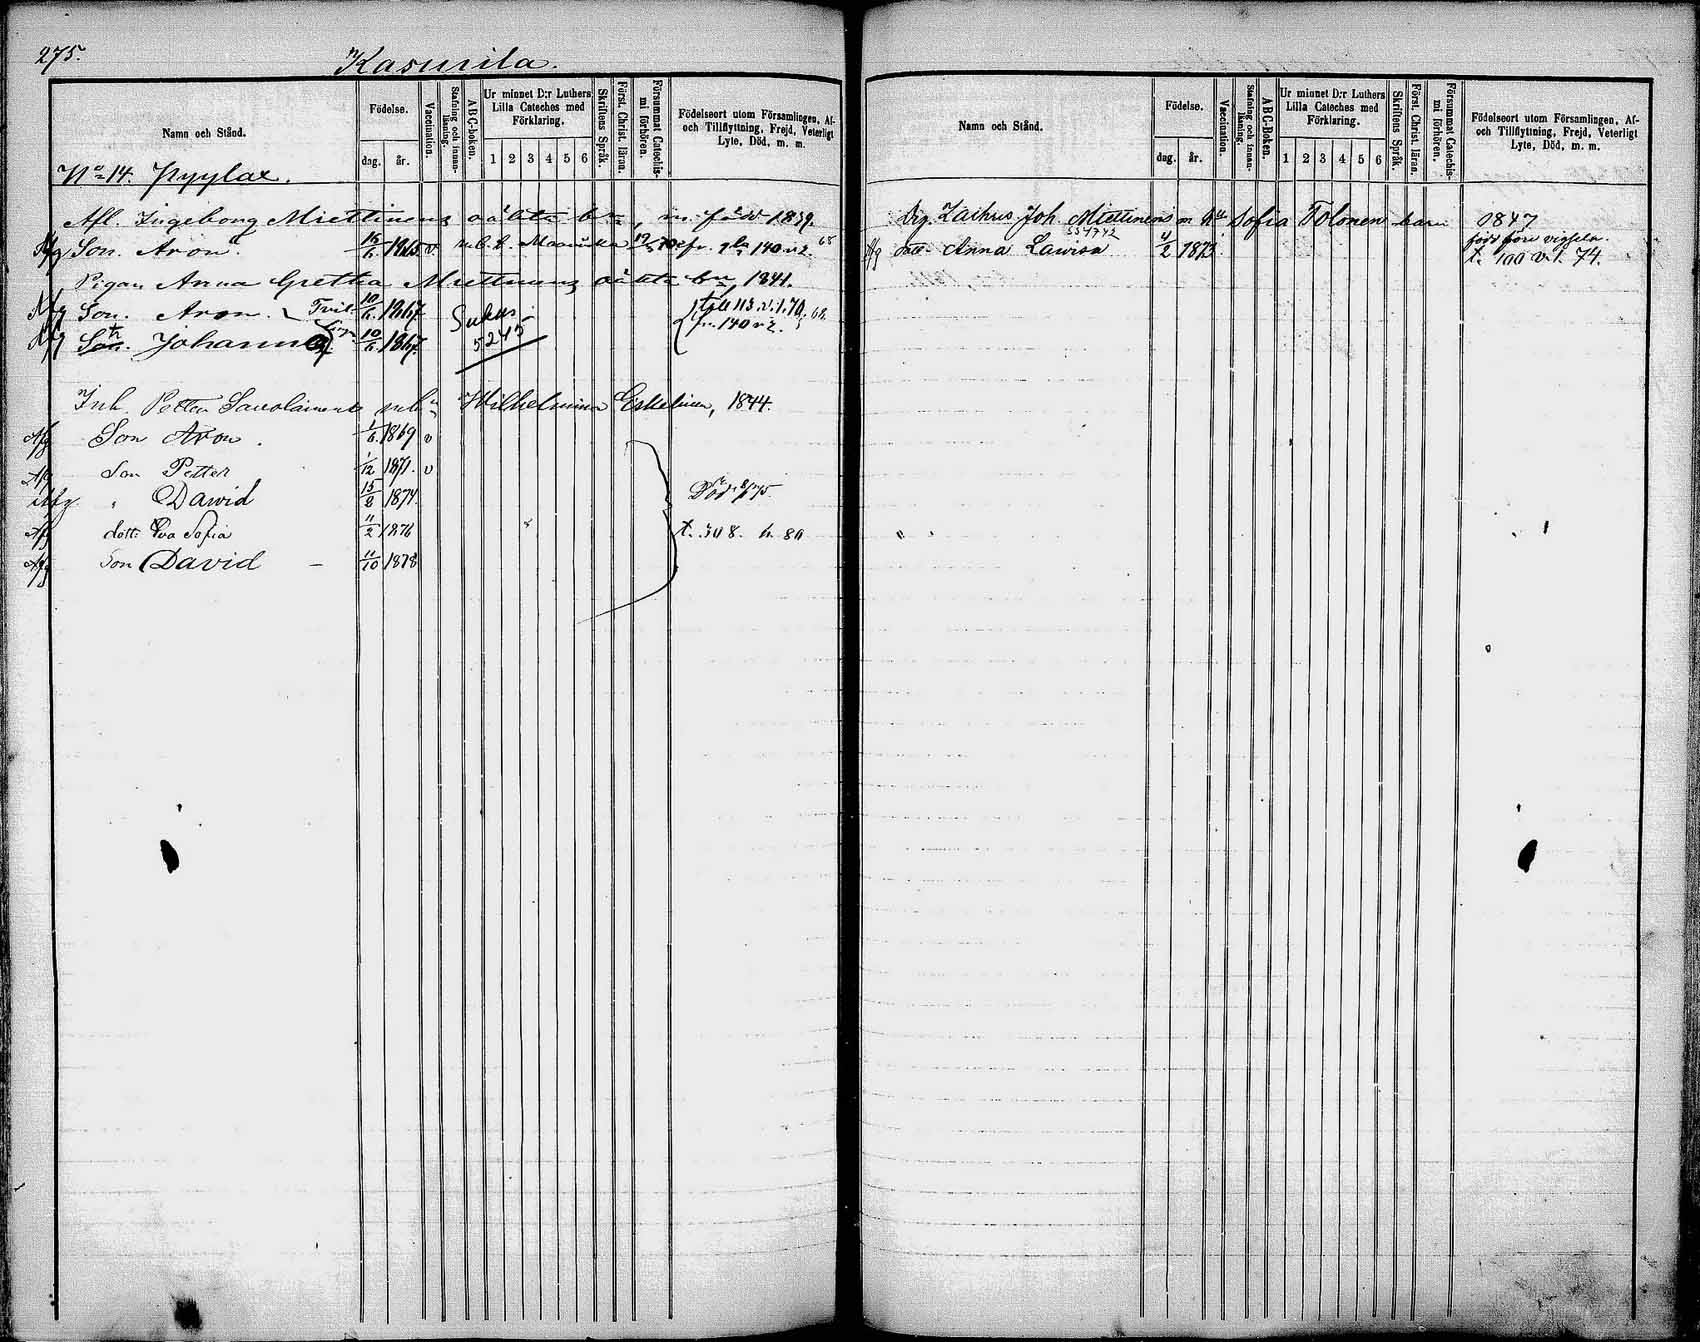 275.
Kasurila.
Namn och Stånd.
Födelse.
dag.
år.
Vaccination.
Stafning och innanläsning.
ABC-boken.
Ur minnet D:r Luthers Lilla Cateches med Förklaring.
1 2 3 4 5 6
Skriftens Språk.
Först. Christ. läran.
Försummat Catechismi förhören.
Födelseort utom Församlingen, Af- och Tillflyttning, Frejd, Veterligt Lyte, Död, m. m.
No 14. Pyylax.
Afl. Ingeborg Miettinens oäkta bn, född 1839.
Afg Son. Aron. 16/6 1865 v. Maaninka 19/5 70 fr. 140 v. 2. 68
Pigan Anna Gretha Miettinens oäkta bn, 1841.
Afg Son. Aron. Tvil- 10/6 1867 till 113. v. 1. 70.
Afg Son. Johann 10/6 1867. fr. 140 v 2. 68
5245
Inh. Petter Savolainens Wilhelmina Eskelinen, 1844.
Afg Son Aron. 1/6 1869 v
Afg Son Petter 1/12 1871. v
Afg. " Dawid 15/2 1874. Död 8/ 75.
Afg dott: Eva Sofia 11/2 1876 t. 308. h. 80
Afg Son David – 11/10 1878
Namn och Stånd.
Födelse.
dag.
år.
Vaccination.
Stafning och innanläsning.
ABC-Boken.
Ur minnet D:r Luthers Lilla Cateches med Förklaring.
1 2 3 4 5 6
Skriftens Språk.
Först. Christ. läran.
Försummat Catechismi förhören.
Födelseort utom Församlingen, Af- och Tillflyttning, Frejd, Veterligt Lyte, Död, m. m.
Joh. Miettinens m. Sofia Tolonen barn 1847
Afg dott. Anna Lawisa 4/2 1873 född före vigseln.
t. 100 v. 1. 74.